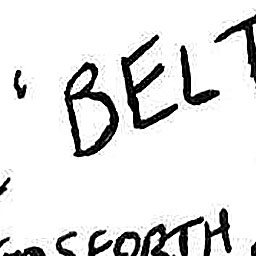 'BELT
GOSFORTH